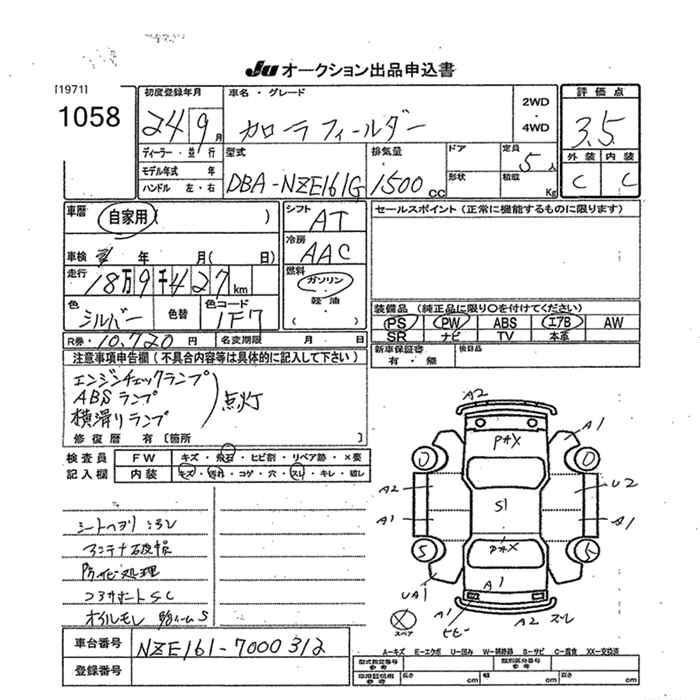 JU オークション出品申込書
[1971]
1058
初度登録年月
24 9月
車名・グレード
カローラフィールダー
2WD
・
4WD
評価点
3.5
外装 内装
C C
ディーラー・並行
モデル年式 年
ハンドル 左・右
型式
DBA-NZE161G
排気量
1500cc
ドア
形状
定員
5人
積載
Kg
車歴
自家用( )
車検 年 月( 日)
走行
18万9千427km
色
シルバー
色替
色コード
1F7
R券・10,720円
名変期限 月 日
シフト
AT
冷房
AAC
燃料
ガソリン
軽油
( )
セールスポイント(正常に機能するものに限ります)
装備品(純正品に限り○を付けてください)
PS PW ABS エアB AW
SR ナビ TV 本革
新車保証書
有・無
後日品
注意事項申告欄(不具合内容等は具体的に記入して下さい)
エンジンチェックランプ
ABSランプ
横滑りランプ
点灯
修復歴 有〔箇所 〕
検査員
記入欄
FW キズ・飛石・ヒビ割・リペア跡・×要
内装 キズ・汚れ・コゲ・穴・スレ・キレ・破レ
アンテナ破損
防サビ処理
コアサポートSC
オイルモレ
車台番号
NZE161-7000312
登録番号
A2
A1
PAX
A2
U2
S1
A1
S1
PAX
UA1
A1
A1
ヒビ
A2 スレ
スペア
A-キズ E-エクボ U-凹み W-補修跡 S-サビ C-腐食 XX-交換済
型式指定番号
参考
類別区分番号
参考
車庫証明用
参考
長さ cm
幅 cm
高さ cm